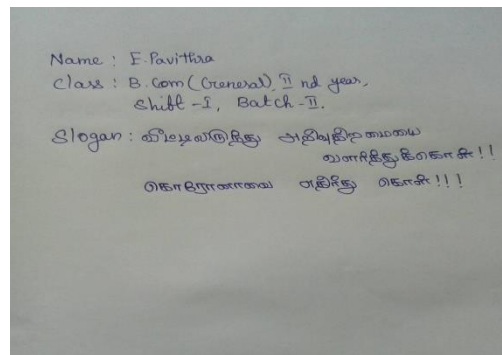 Name : E. Pavithra
Class : B. Com (General), II nd year,
Shift - I, Batch - II.
Slogan : வீட்டிலிருந்து அறிவுதிறமையை
வளர்த்துக்கொள்!!
கொரோனாவை எதிர்த்து கொள்!!!